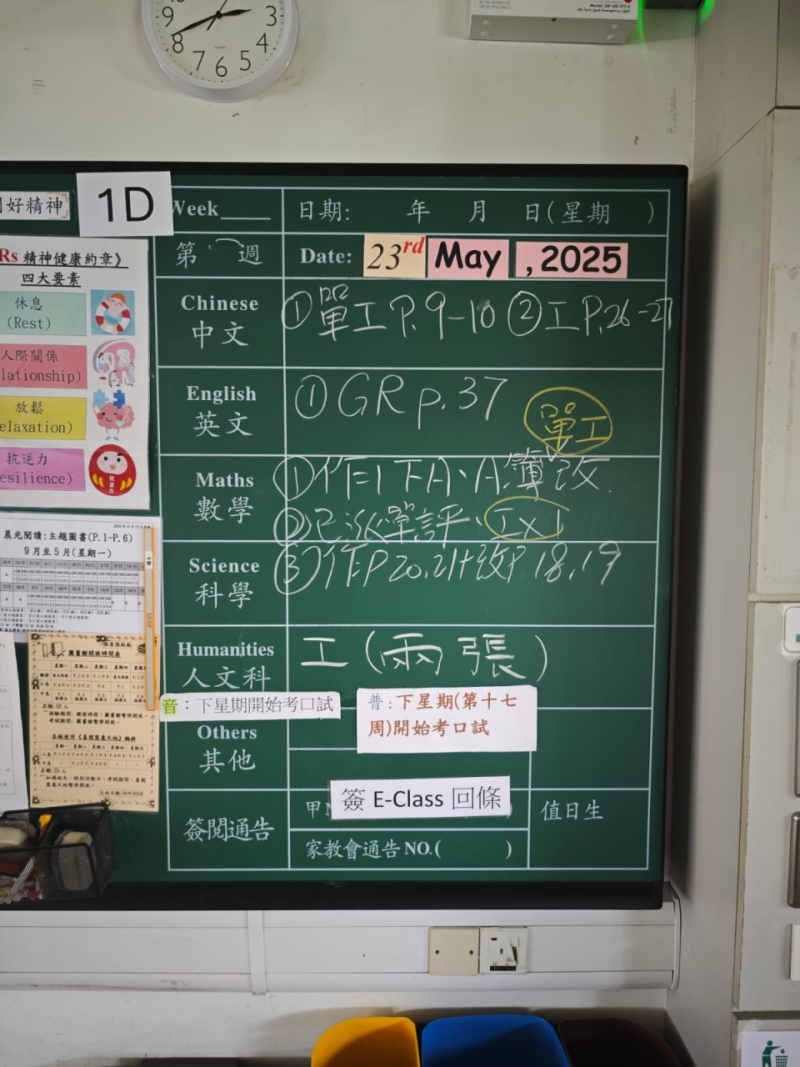 9
8
7
6
5
4
3
好精神
1D
Week
日期: 年 月 日(星期 )
第 週
Date: 23rd May , 2025
Rs 精神健康約章》
四大要素
休息
(Rest)
人際關係
lationship)
放鬆
elaxation)
抗逆力
esilience)
Chinese
中文
① 單工 P. 9-10 ② 工 P. 26-27
English
英文
① GR p. 37
單工
Maths
數學
① 作1下A、A簿改
② 已派單評、工x1
Science
科學
③ 作P20,21+改P. 18,19
Humanities
人文科
工(兩張)
音:下星期開始考口試
普:下星期(第十七
周)開始考口試
Others
其他
簽閱通告
甲
簽 E-Class 回條
)
值日生
家教會通告 NO.( )
晨光閱讀:主題圖書(P.1-P.6)
9月至5月(星期一)
圖書館開放時間表